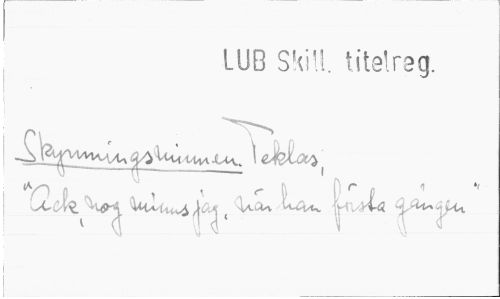 LUB Skill. titelreg.
Skymningsminnen. Teklas;
"Ack, nog minns jag, när han första gången"